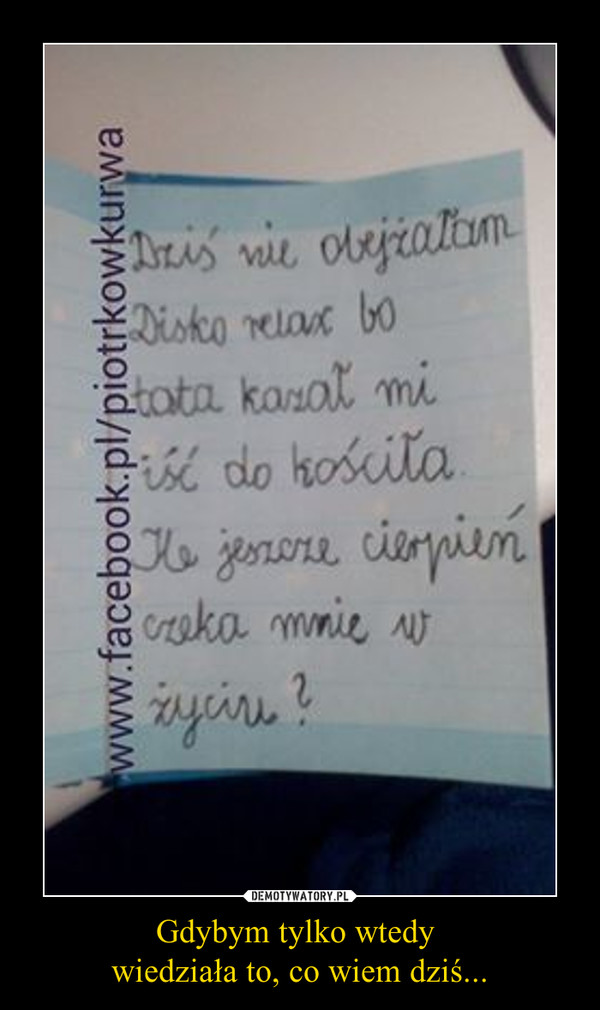 www.facebook.pl/piotrkowkurwa
Dziś nie obejżałam
Disko relax bo
tata kazał mi
iść do kościła.
Ile jeszcze cierpień
czeka mnie w
życiu?
DEMOTYWATORY.PL
Gdybym tylko wtedy
wiedziała to, co wiem dziś...